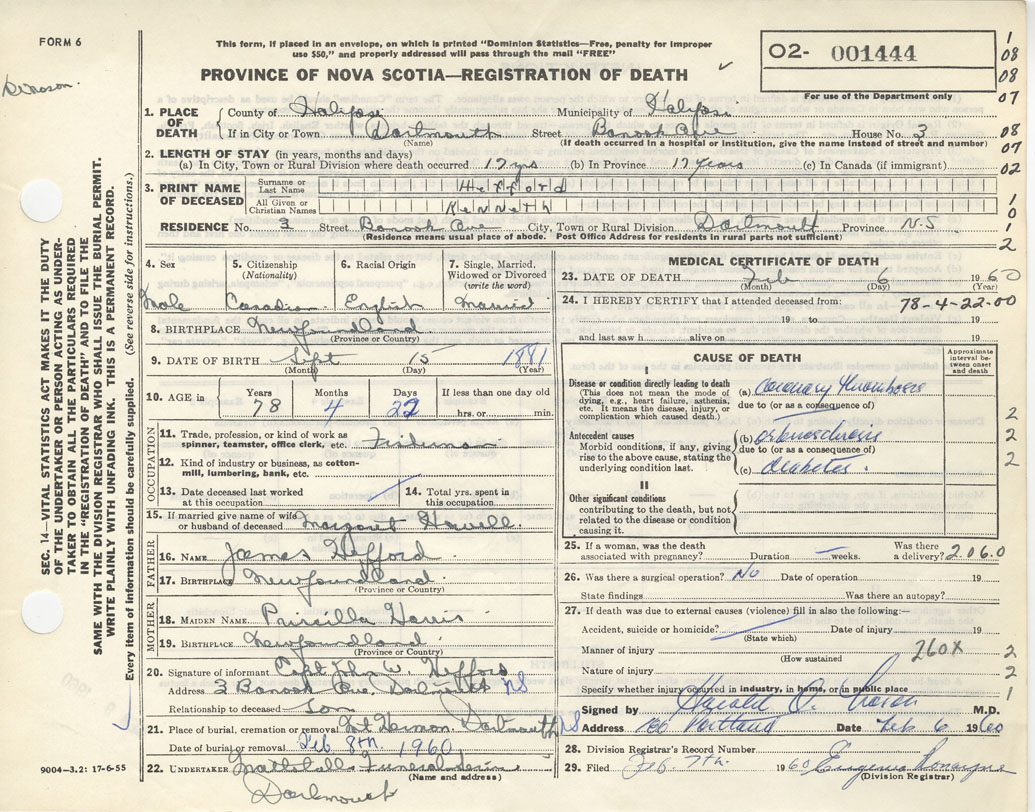 FORM 6
This form, if placed in an envelope, on which is printed "Dominion Statistics—Free, penalty for improper
use $50," and properly addressed will pass through the mail "FREE"
PROVINCE OF NOVA SCOTIA—REGISTRATION OF DEATH
O2- 001444
For use of the Department only
1
08
08
07
08
07
02
1
0
1
2
1. PLACE OF DEATH
County of Halifax Municipality of Halifax
If in City or Town Dartmouth Street Banook Ave House No. 3
(Name) (If death occurred in a hospital or institution, give the name instead of street and number)
2. LENGTH OF STAY (in years, months and days)
(a) In City, Town or Rural Division where death occurred 17 yrs (b) In Province 17 years (c) In Canada (if immigrant)
3. PRINT NAME OF DECEASED
Surname or Last Name Hefford
All Given or Christian Names Kenneth
RESIDENCE No. 3 Street Banook Ave City, Town or Rural Division Dartmouth Province N.S
(Residence means usual place of abode. Post Office Address for residents in rural parts not sufficient)
SEC. 14—VITAL STATISTICS ACT MAKES IT THE DUTY
OF THE UNDERTAKER OR PERSON ACTING AS UNDER-
TAKER TO OBTAIN ALL THE PARTICULARS REQUIRED
IN THE "REGISTRATION OF DEATH" AND TO FILE THE
SAME WITH THE DIVISION REGISTRAR WHO SHALL ISSUE THE BURIAL PERMIT.
WRITE PLAINLY WITH UNFADING INK. THIS IS A PERMANENT RECORD.
Every item of information should be carefully supplied. (See reverse side for instructions.)
4. Sex 5. Citizenship (Nationality) 6. Racial Origin 7. Single, Married, Widowed or Divorced (write the word)
Male Canadian English Married
8. BIRTHPLACE Newfoundland
(Province or Country)
9. DATE OF BIRTH Sept 15 1881
(Month) (Day) (Year)
10. AGE in Years Months Days If less than one day old
78 4 22 hrs. or min.
OCCUPATION
11. Trade, profession, or kind of work as
spinner, teamster, office clerk, etc. Fisherman
12. Kind of industry or business, as cotton-
mill, lumbering, bank, etc.
13. Date deceased last worked at this occupation 14. Total yrs. spent in this occupation
15. If married give name of wife or husband of deceased Margaret Howell.
FATHER
16. NAME James Hefford
17. BIRTHPLACE Newfoundland
(Province or Country)
MOTHER
18. MAIDEN NAME Priscilla Harris
19. BIRTHPLACE Newfoundland
(Province or Country)
20. Signature of informant Capt John W. Hefford
Address 3 Banook Ave. Dartmouth NS
Relationship to deceased Son
21. Place of burial, cremation or removal Mt Hermon Dartmouth NS
Date of burial or removal Feb. 8th. 1960
22. UNDERTAKER Mattatall's Funeral
(Name and address)
Dartmouth
9004-3.2: 17-6-55
MEDICAL CERTIFICATE OF DEATH
23. DATE OF DEATH Feb 6 1960
(Month) (Day) (Year)
24. I HEREBY CERTIFY that I attended deceased from: 78-4-22-00
19 to 19
and last saw h alive on 19
CAUSE OF DEATH
Approximate interval between onset and death
I
Disease or condition directly leading to death
(This does not mean the mode of
dying, e.g., heart failure, asthenia,
etc. It means the disease, injury, or
complication which caused death.)
(a) Coronary thrombosis
due to (or as a consequence of)
2
Antecedent causes
Morbid conditions, if any, giving
rise to the above cause, stating the
underlying condition last.
(b) arteriosclerosis
due to (or as a consequence of)
2
(c) diabetes.
2
II
Other significant conditions
contributing to the death, but not
related to the disease or condition
causing it.
25. If a woman, was the death associated with pregnancy? Duration weeks. Was there a delivery? 2060
26. Was there a surgical operation? No Date of operation 19
State findings Was there an autopsy?
27. If death was due to external causes (violence) fill in also the following:—
Accident, suicide or homicide? Date of injury 19
(State which)
Manner of injury 260X 2
(How sustained)
Nature of injury 2
Specify whether injury occurred in industry, in home, or in public place 1
Signed by Harald O. M.D.
Address 166 Portland Date Feb 6 1960
28. Division Registrar's Record Number
29. Filed Feb. 7th. 1960 Eugenie
(Division Registrar)